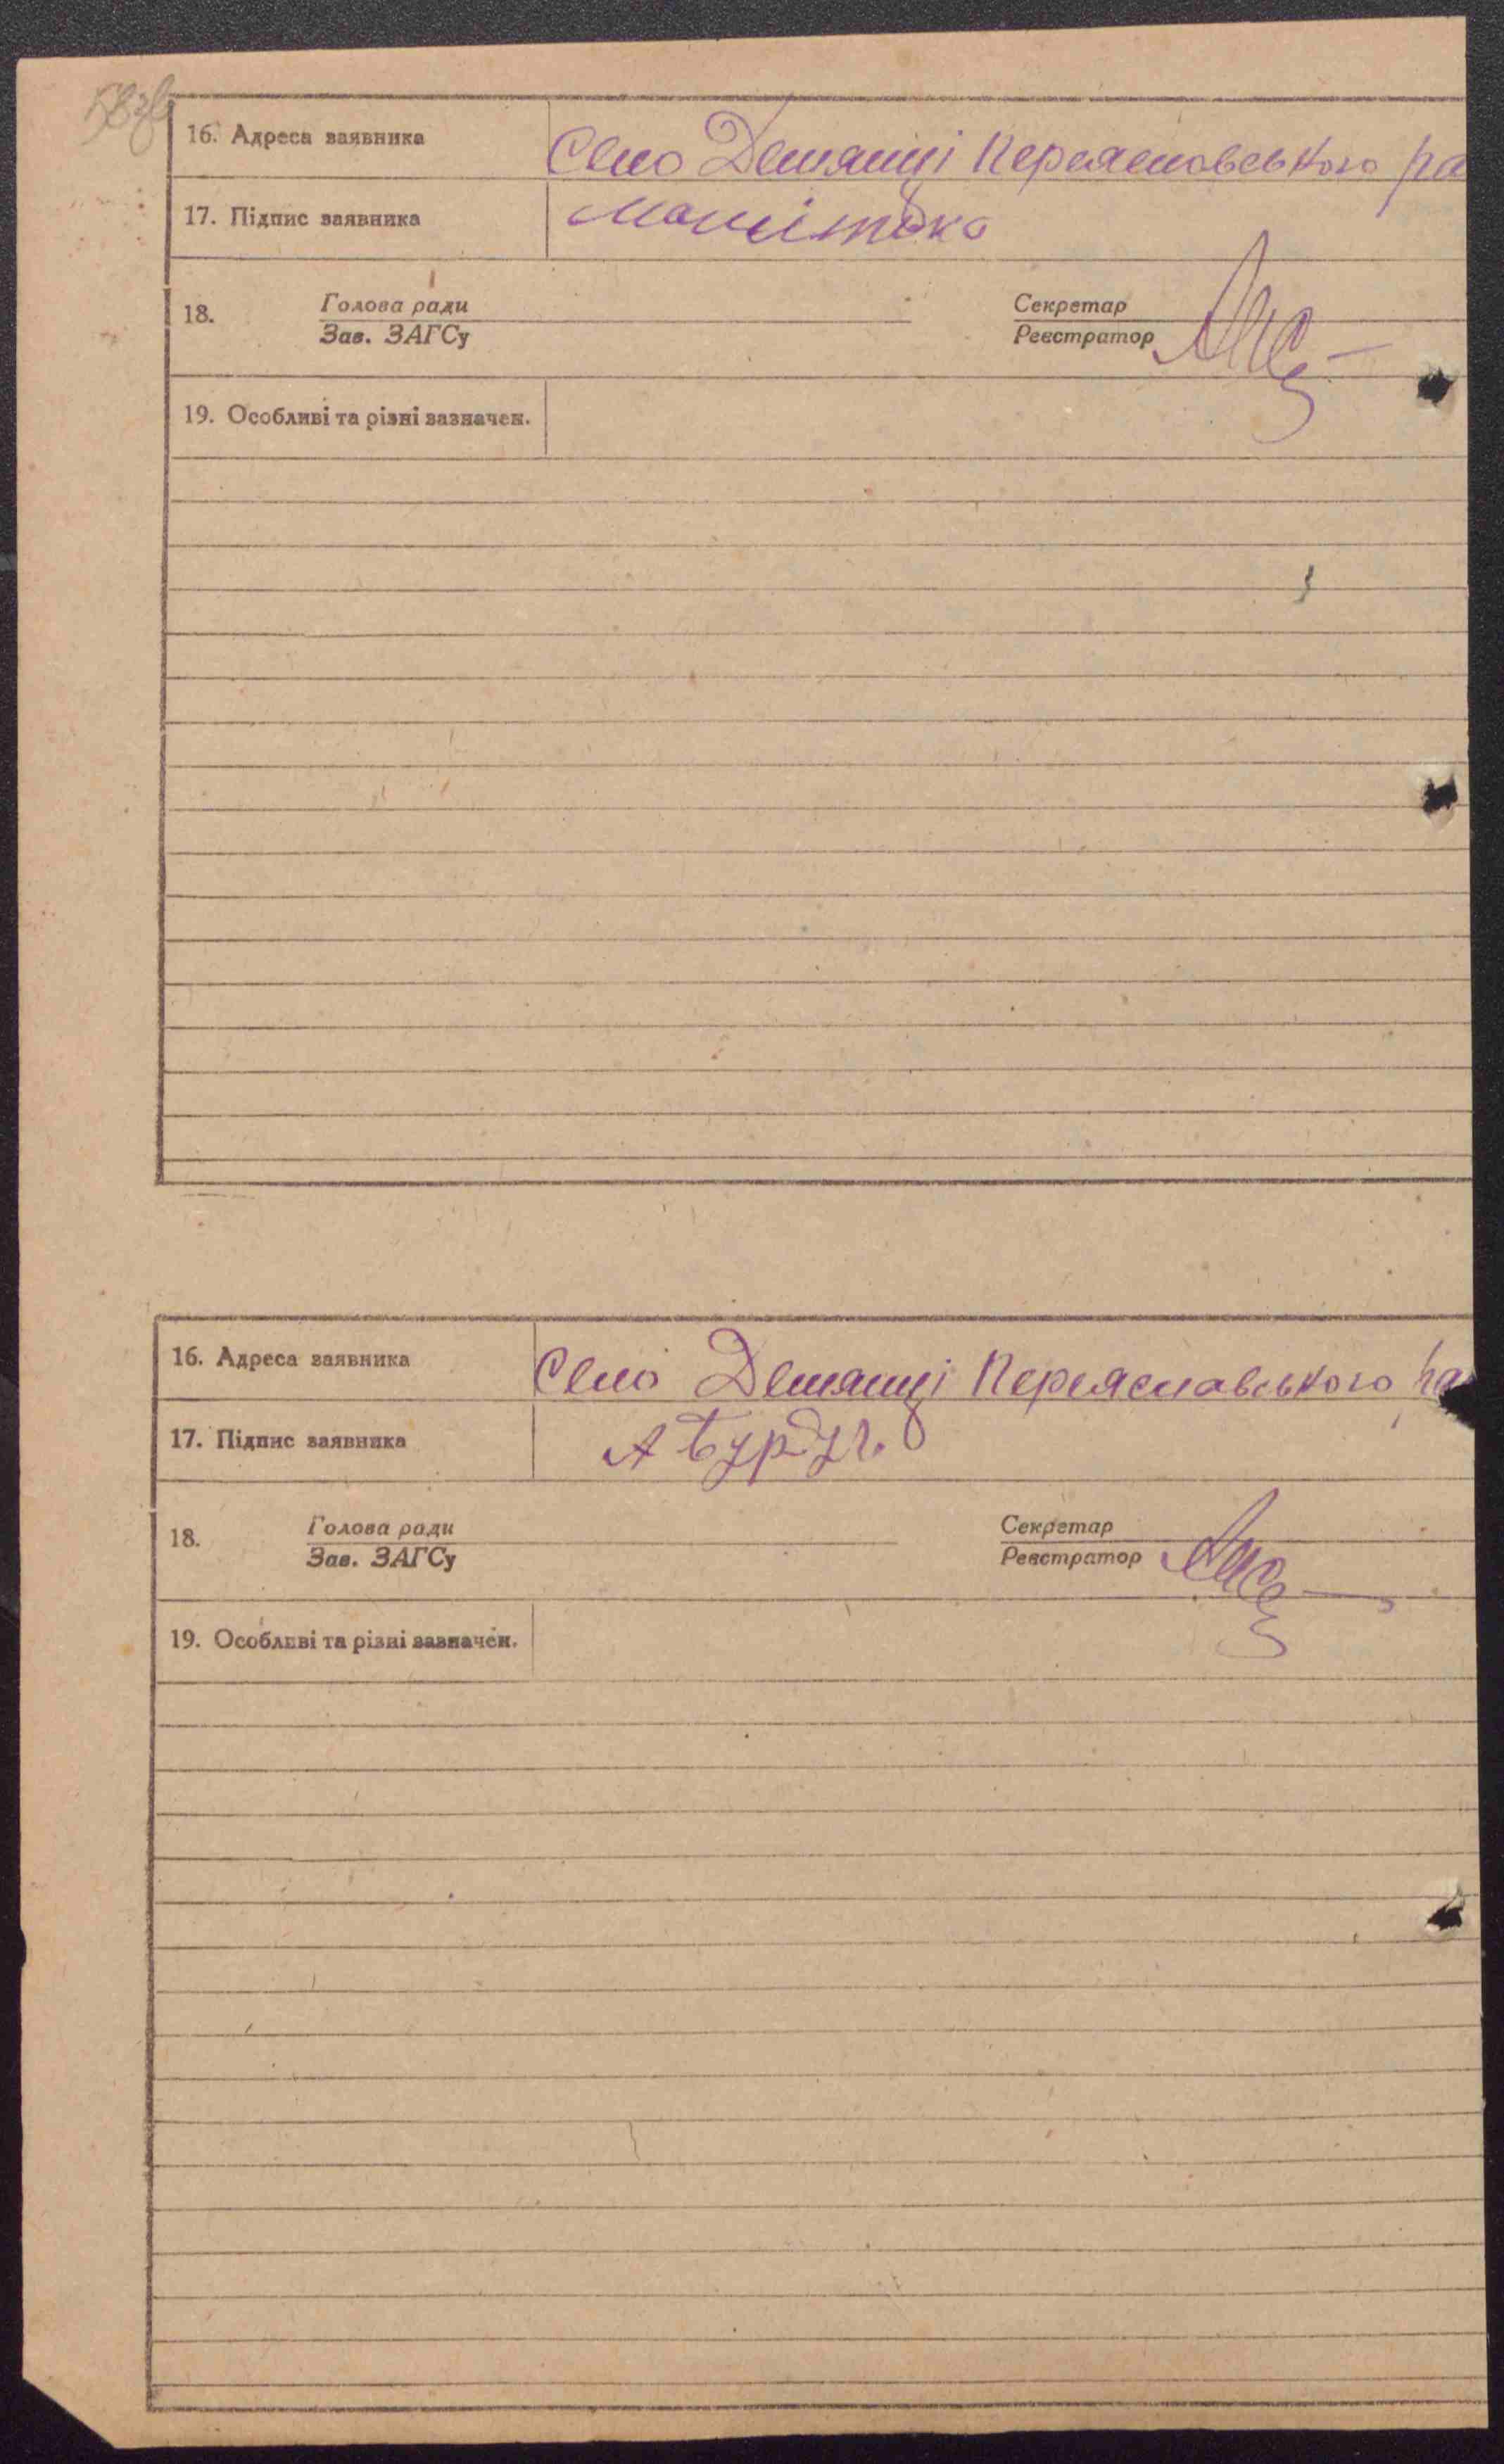 16. Адреса заявника Село Демянці Переяславського ра
17. Підпис заявника
18. Голова ради Секретар
Зав. ЗАГСу Реєстратор
19. Особливі та різні зазначен.
16. Адреса заявника Село Демянці Переяславського ра
17. Підпис заявника А Бурдуг.
18. Голова ради Секретар
Зав. ЗАГСу Реєстратор
19. Особливі та різні зазначен.